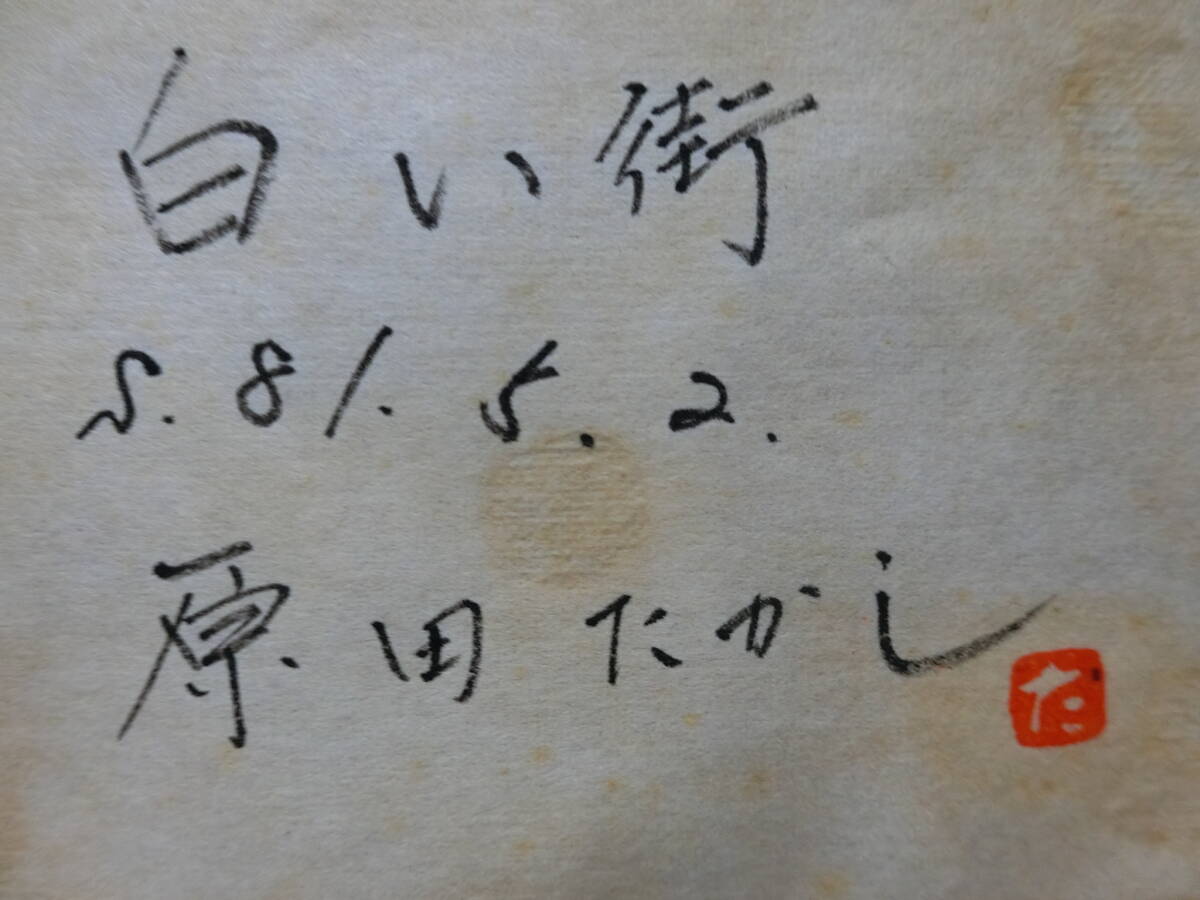 白い街
S. 81. 5. 2.
原田たかし
た